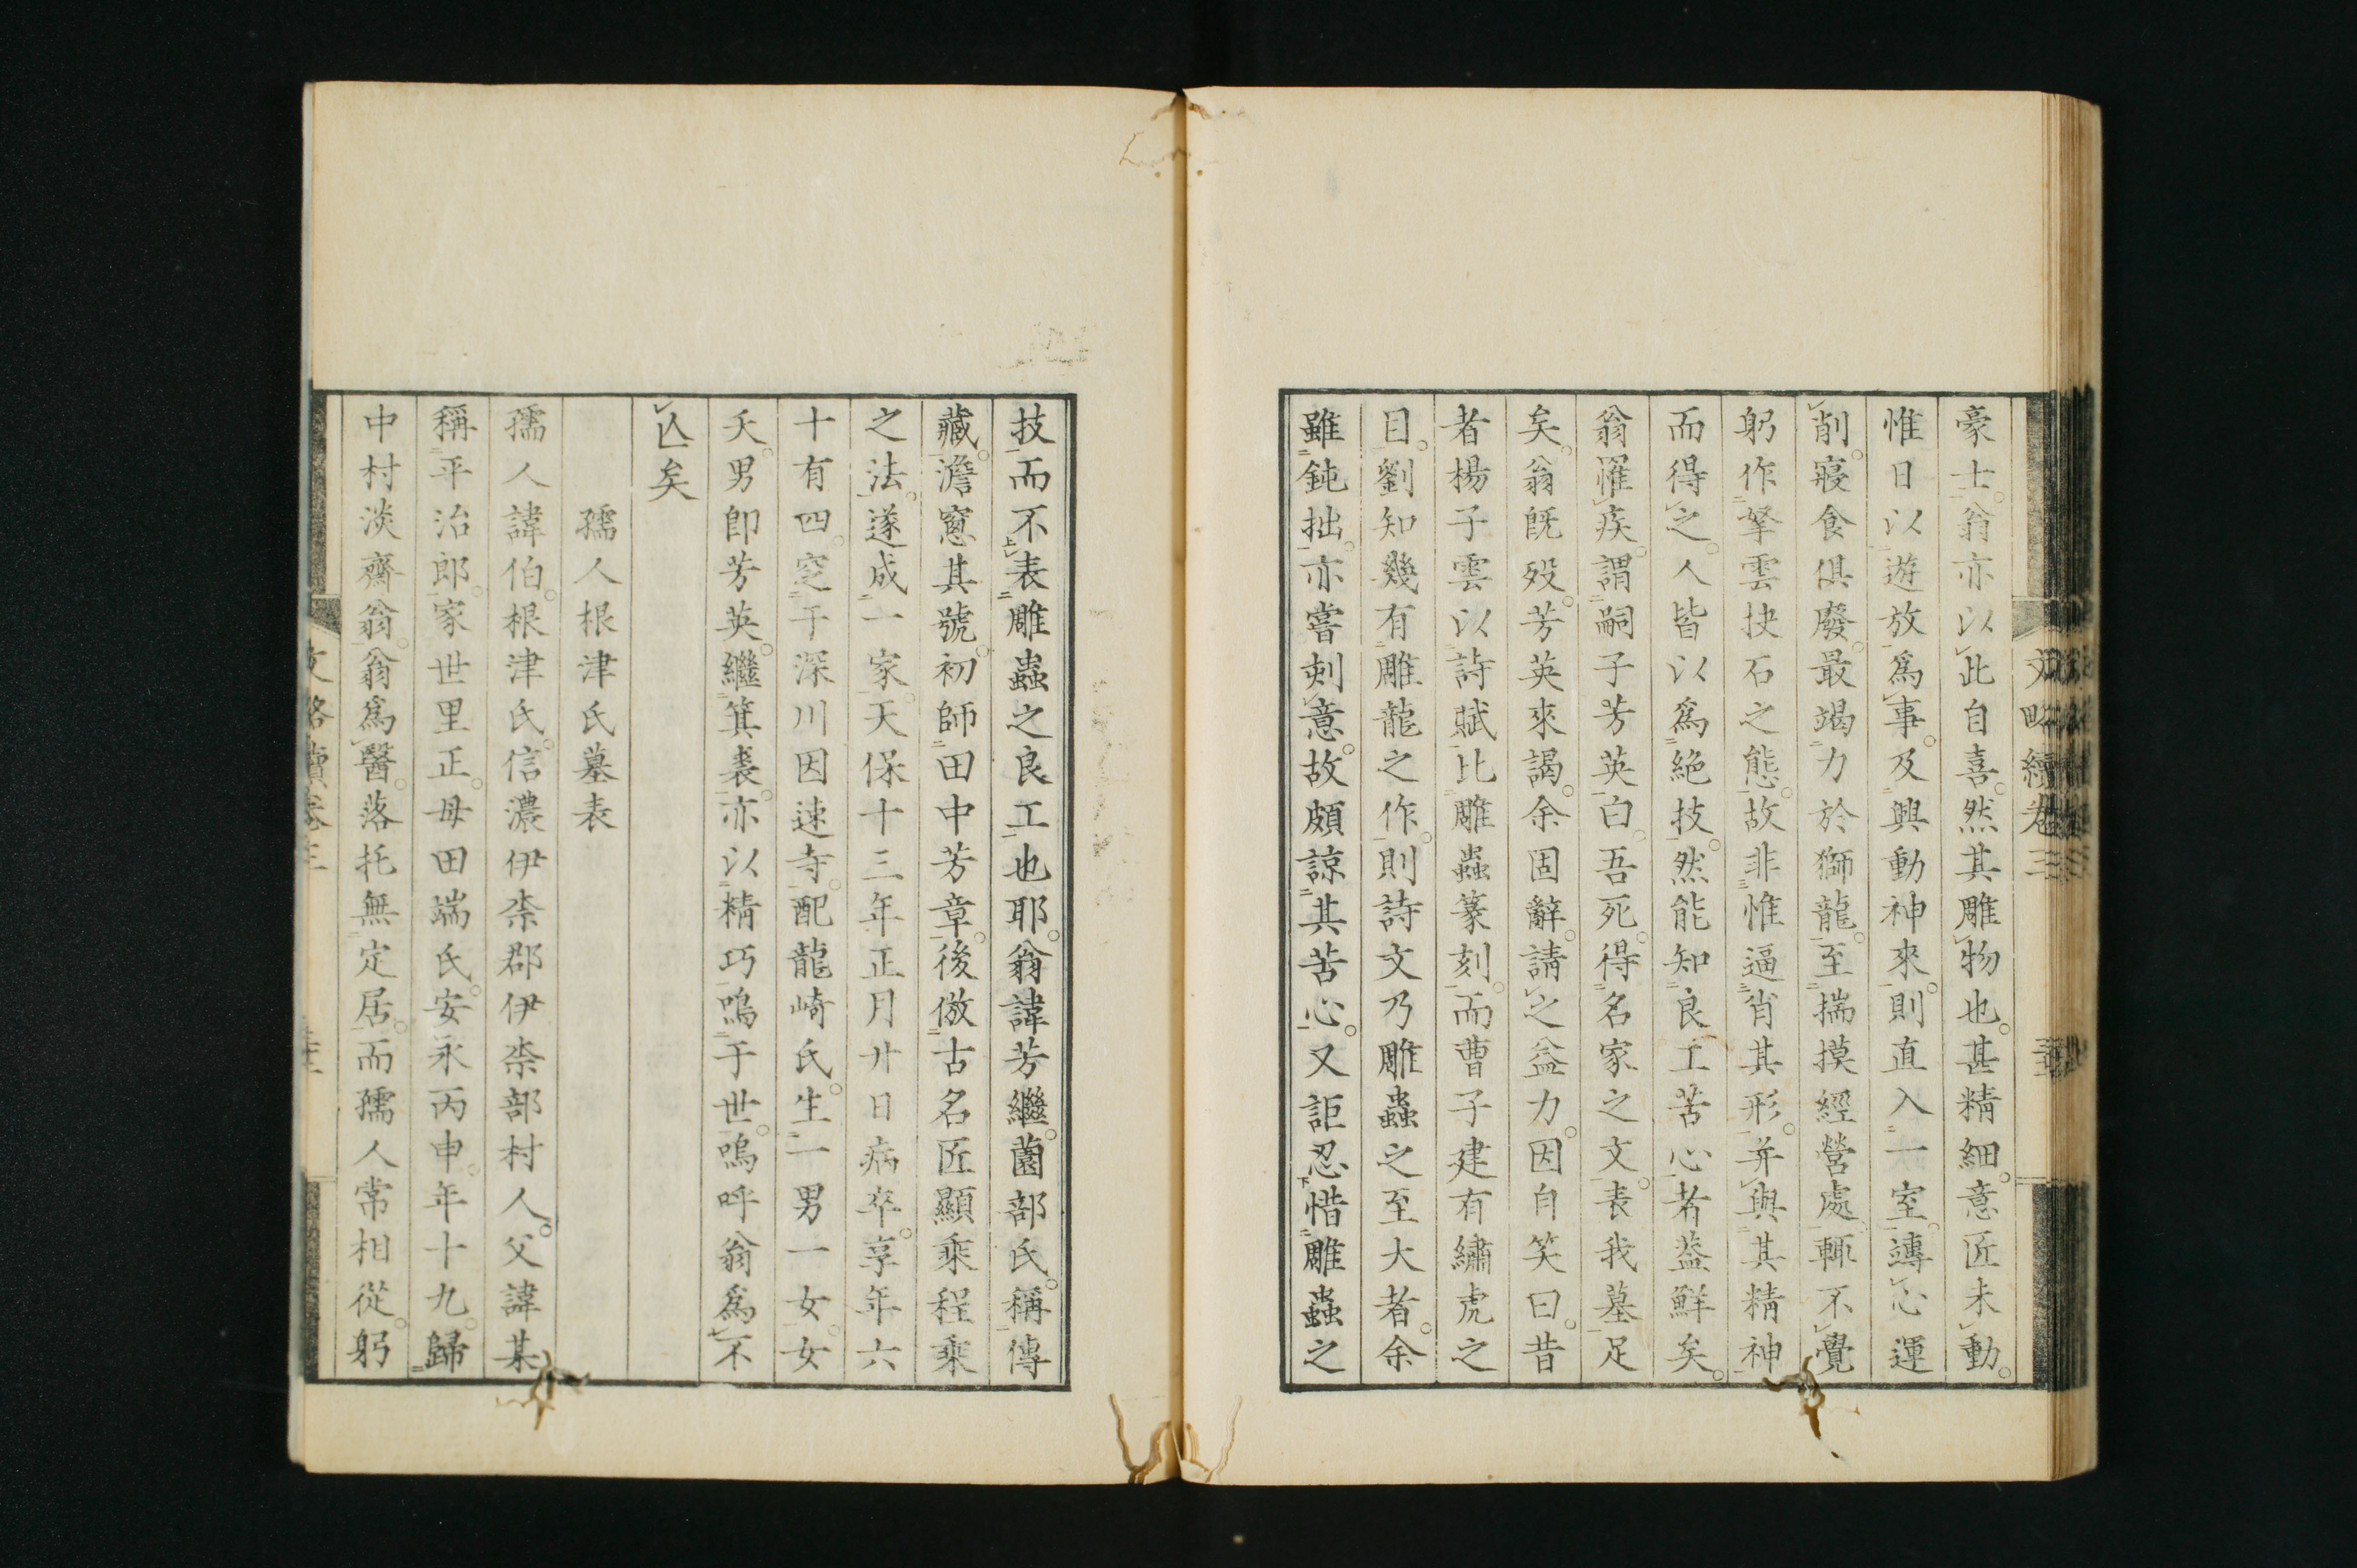 豪士。翁亦以此自喜。然其雕物也。甚精細。意匠未動。
惟日以遊放爲事。及興動神來。則直入一室。專心運
削。寢食俱廢。最竭力於獅龍。至揣摸經營處。輒不覺
躬作拏雲抉石之態。故非惟逼肖其形。并與其精神
而得之。人皆以爲絶技。然能知良工苦心者。葢鮮矣。
翁罹疾。謂嗣子芳英白。吾死。得名家之文。表我墓足
矣。翁旣歿。芳英來謁。余固辭。請之益力。因自笑曰。昔
者楊子雲以詩賦比雕蟲篆刻。而曹子建有繡虎之
目。劉知幾有雕龍之作。則詩文乃雕蟲之至大者。余
雖鈍拙。亦嘗刻意。故頗諒其苦心。又詎忍惜雕蟲之
文略續卷三
技而不表雕蟲之良工也耶。翁諱芳繼。薗部氏。稱傳
藏。澹窻其號。初師田中芳章。後倣古名匠顯乘程乘
之法。遂成一家。天保十三年正月廿日病卒。享年六
十有四。窆于深川因速寺。配龍崎氏。生二男一女。女
夭。男卽芳英。繼箕裘。亦以精巧鳴于世。嗚呼翁爲不
亾矣
孺人根津氏墓表
孺人諱伯。根津氏。信濃伊柰郡伊柰部村人。父諱某
稱平治郎。家世里正。母田端氏。安永丙申。年十九。歸
中村淡齋翁。翁爲醫。落托無定居。而孺人常相從。躬
文略續卷三